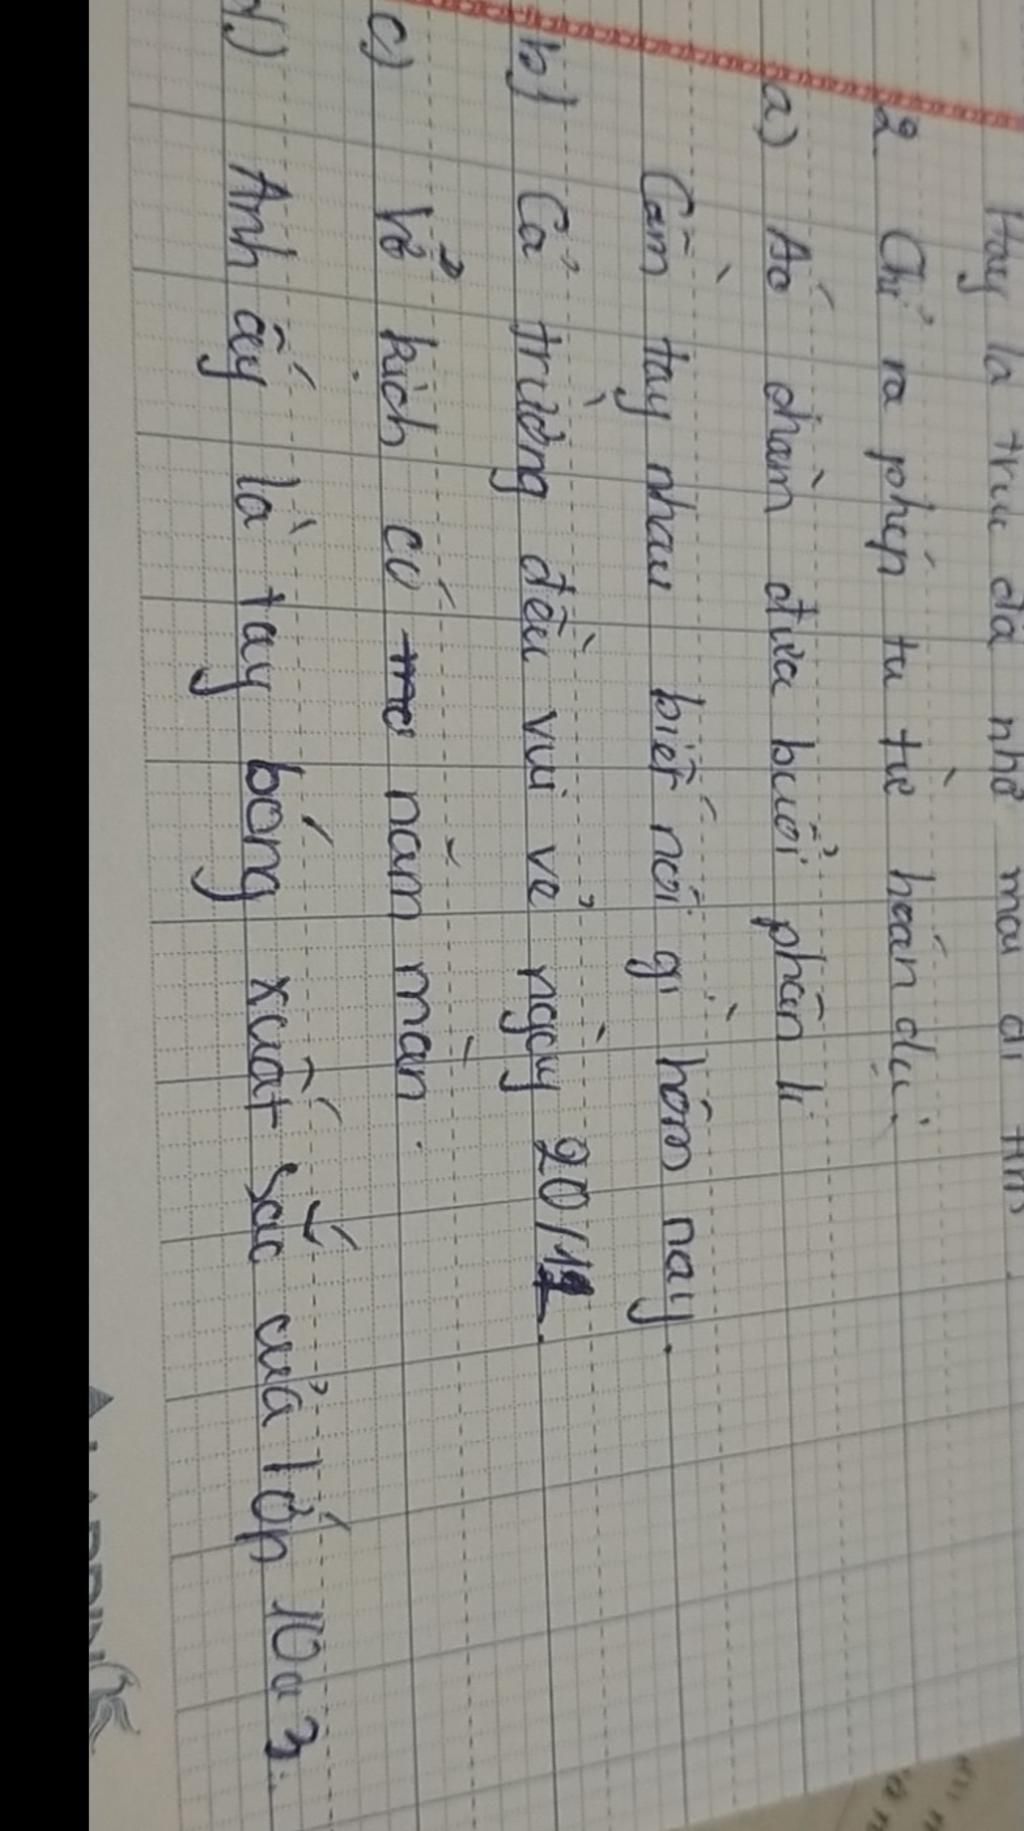 Hãy là trui đã nhỏ mai đi tìm
2 Chỉ ra phép tu từ hoán dụ.
a) Áo chàm đưa buổi phân li
Cầm tay nhau biết nói gì hôm nay.
b) Cả trường đều vui vẻ ngày 20/11.
c) Vở kịch có năm màn.
d) Anh ấy là tay bóng xuất sắc của lớp 10a3.